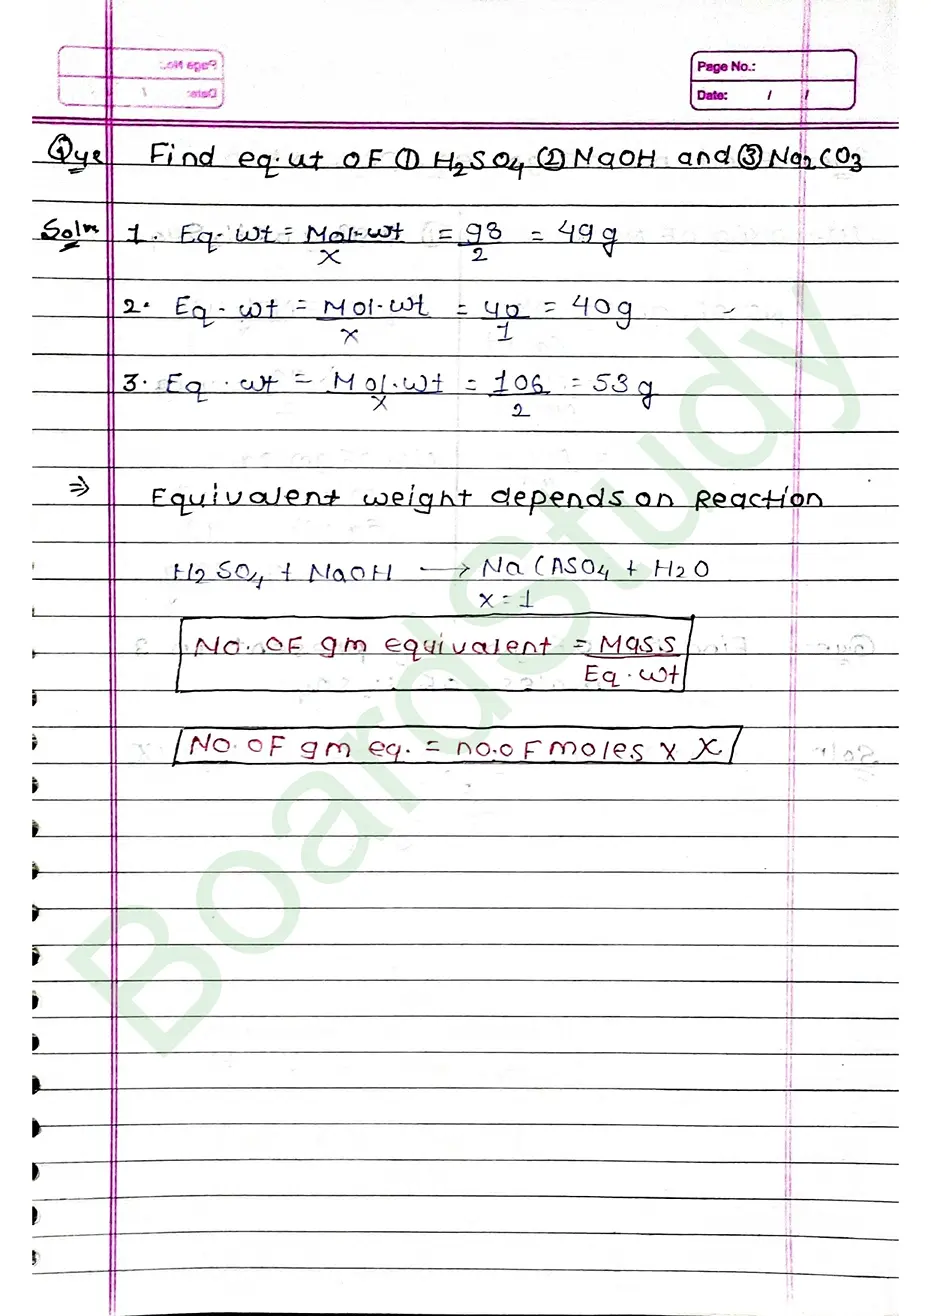 Page No.:
Date: / /
Que Find eq.wt OF ① H2SO4 ② NaOH and ③ Na2CO3
Soln 1. Eq. wt = Mol.wt / x = 98 / 2 = 49 g
2. Eq. wt = Mol.wt / x = 40 / 1 = 40 g
3. Eq. wt = Mol.wt / x = 106 / 2 = 53 g
⇒ Equivalent weight depends on Reaction
H2SO4 + NaOH → Na SO4 + H2O
x = 1
No. OF gm equivalent = Mass / Eq. wt
No. OF gm eq. = no. oF moles x X
BoardStudy